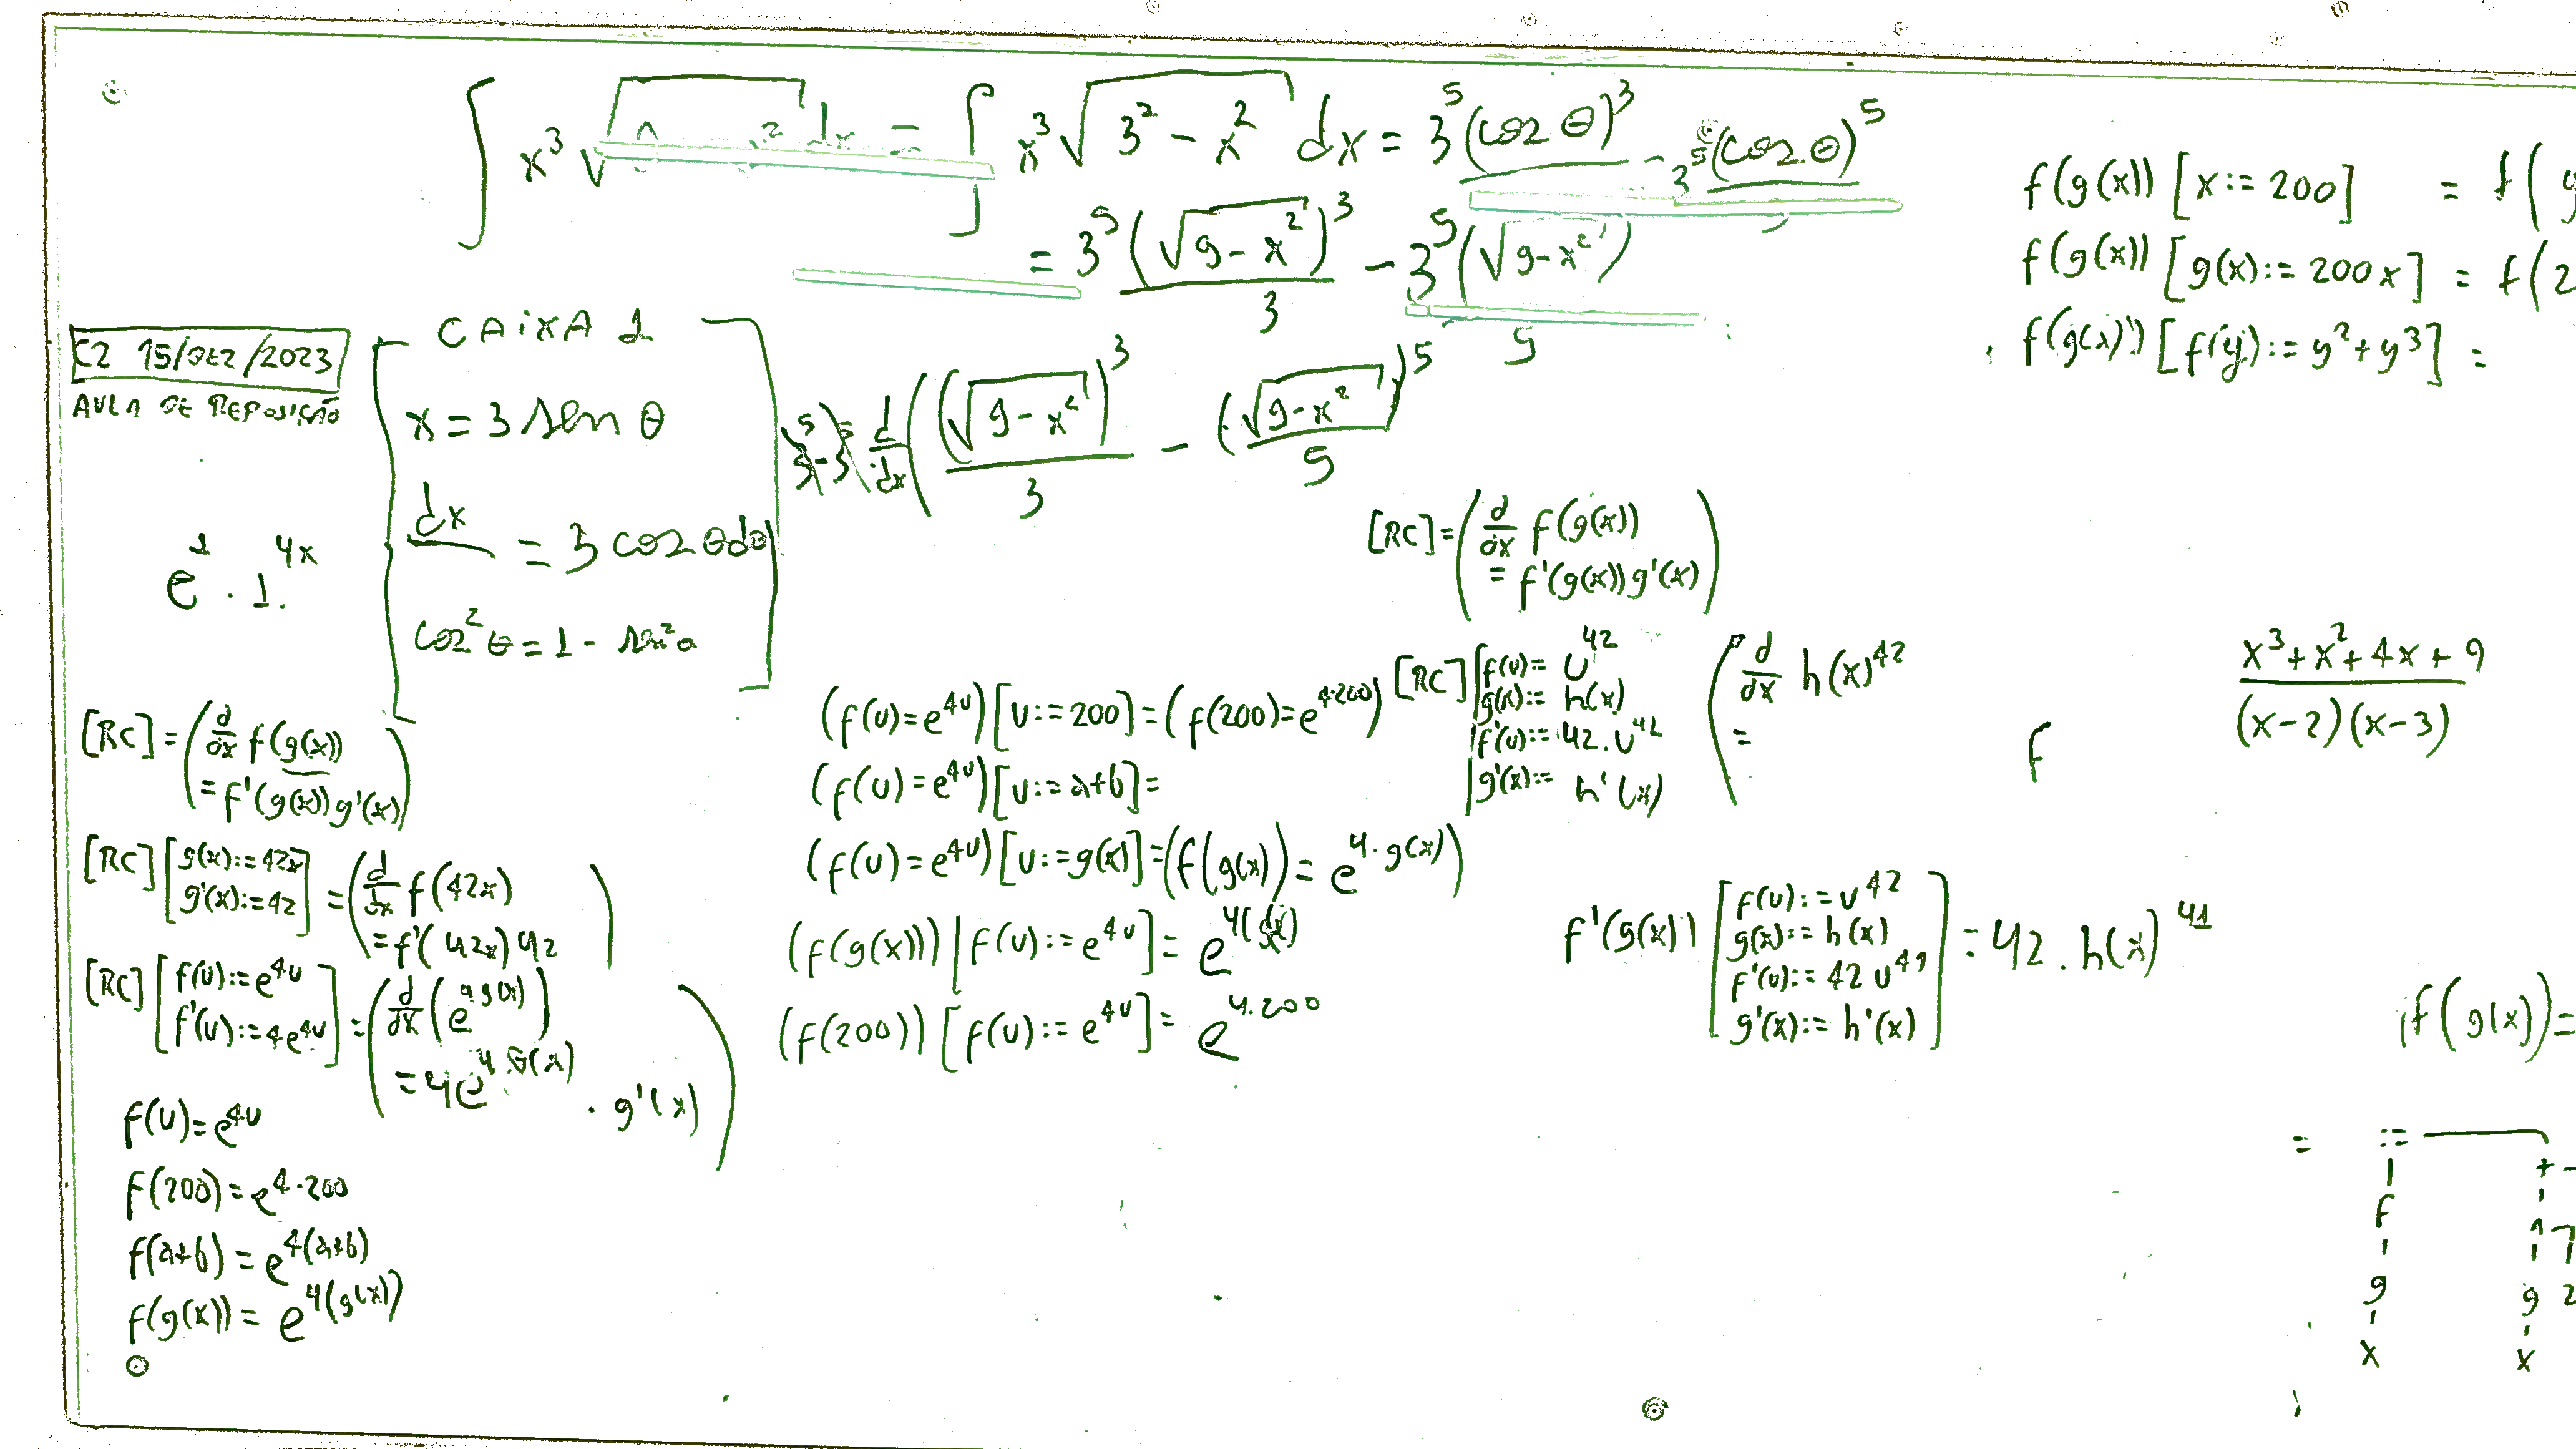 ∫ x³ √ ² dx = ∫ x³ √(3² - x²) dx = 3⁵ (cos θ)³ - 3⁵ (cos θ)⁵
= 3⁵ (√(9-x²))³ / 3 - 3⁵ (√(9-x²)) / 5
C2 15/DEZ/2023
AULA DE REPOSIÇÃO
CAIXA 1
x = 3 sen θ
dx = 3 cos θ dθ
cos² θ = 1 - sen² θ
e¹ · 1^{4x}
d/dx ( (√(9-x²))³ / 3 - (√(9-x²))⁵ / 5
[RC] = ( d/dx f(g(x))
= f'(g(x)) g'(x) )
[RC] [ g(x):=42x
g'(x):=42 ] = ( d/dx f(42x)
= f'(42x) 42 )
[RC] [ f(u):=e^{4u}
f'(u):=4e^{4u} ] = ( d/dx (e^{4g(x)})
= 4e^{4·g(x)} · g'(x) )
f(u)=e^{4u}
f(200)=e^{4·200}
f(a+b)=e^{4(a+b)}
f(g(x))=e^{4(g(x))}
(f(u)=e^{4u}) [u:=200] = (f(200)=e^{4·200})
(f(u)=e^{4u}) [u:=a+b] =
(f(u)=e^{4u}) [u:=g(x)] = (f(g(x)) = e^{4·g(x)})
(f(g(x))) [f(u):=e^{4u}] = e^{4(g(x))}
(f(200)) [f(u):=e^{4u}] = e^{4·200}
[RC] = ( d/dx f(g(x))
= f'(g(x)) g'(x) )
[RC] | f(u):= u^{42}
g(x):= h(x)
f'(u):= 42·u^{42}
g'(x):= h'(x)
( d/dx h(x)^{42}
=
f'(g(x)) [ f(u):= u^{42}
g(x):= h(x)
f'(u):= 42 u^{41}
g'(x):= h'(x) ] = 42 · h(x)^{41}
f(g(x)) [x:=200] = f(g
f(g(x)) [g(x):=200x] = f(2
f(g(x)) [f(y):=y²+y³] =
f
x³+x²+4x+9
(x-2)(x-3)
f(g(x))=
= :=
f
g g 2
x x